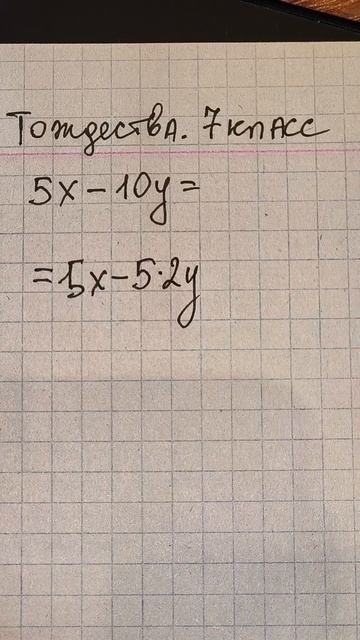 Тождества. 7 класс
5x-10y=
=5x-5·2y